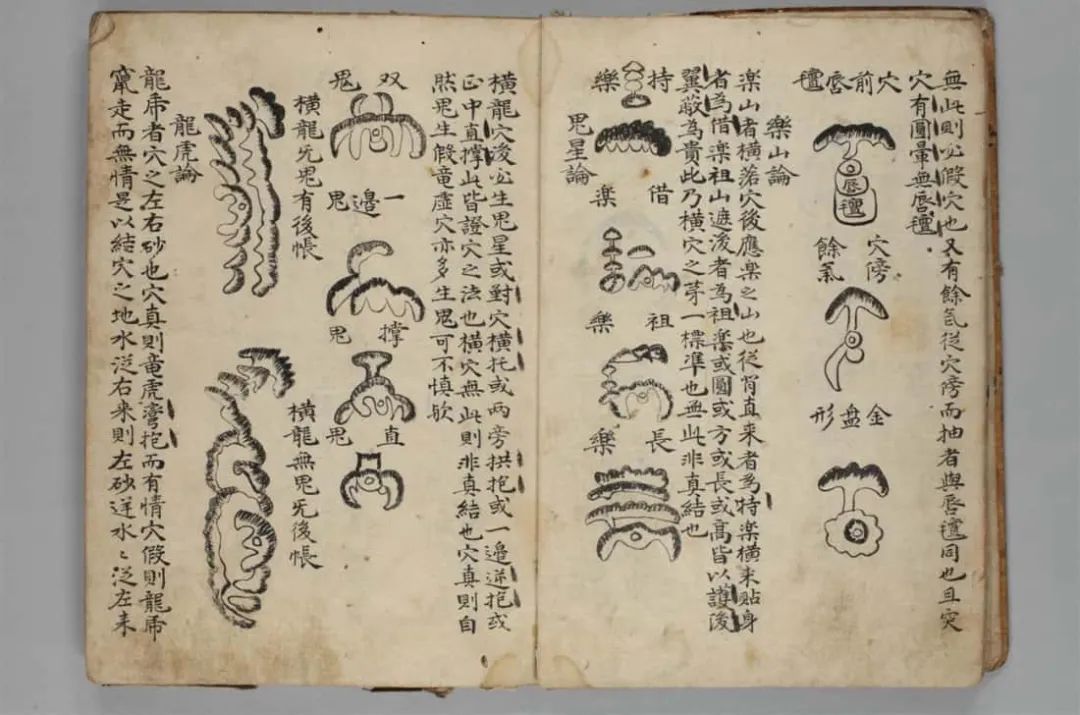 無此則必假穴也又有餘氣從穴傍而抽者與唇氊同也且突
穴有圓暈無唇氊
穴前唇氊
唇氊
穴傍
餘氣
金盘形
樂山論
楽山者横落穴後應楽之山也從背直来者為特楽横来貼身
者為借楽祖山遮後者為祖楽或圓或方或長或髙皆以護後
翼蔽為貴此乃横穴之苐一標準也無此非真結也
持楽
借楽
祖楽
長楽
鬼星論
横龍穴後必生鬼星或對穴横托或两旁拱抱或一邉逆抱或
正中直撑此皆證穴之法也横穴無此則非真結也穴真則自
然鬼生假竜虚穴亦多生鬼可不慎欤
双鬼
一邉鬼
撑鬼
直鬼
横龍旡鬼有後帳
横龍無鬼旡後帳
龍虎論
龍虎者穴之左右砂也穴真則竜虎湾抱而有情穴假則龍虎
竄走而無情是以結穴之地水从右来則左砂逆水水从左来